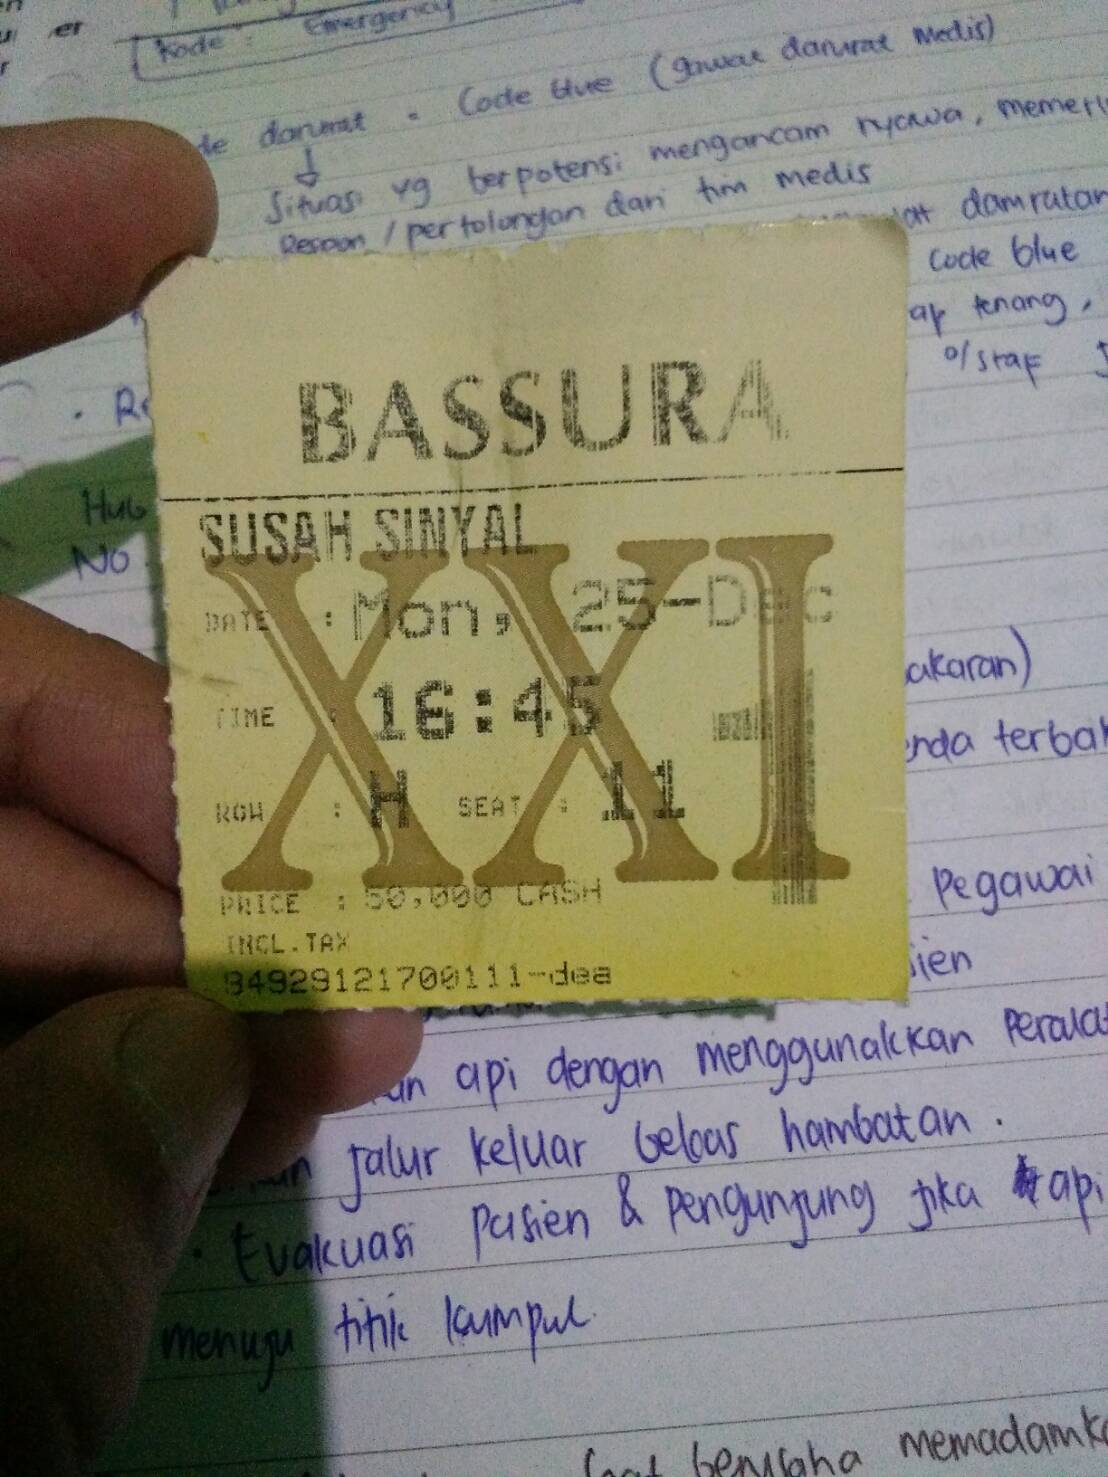 er
Kode : Emergency
darurat = Code blue (gawat darurat medis)
Situasi yg berpotensi mengancam nyawa,
Respon / pertolongan dari tim medis
code blue
tenang,
o/ staf
BASSURA
Hub
No
SUSAH SINYAL
XXI
DATE : Mon, 25-Dec
TIME : 16:45
ROW : H SEAT : 11
PRICE : 50,000 CASH
INCL.TAX
94929121700111-dea
akaran)
Pegawai
api dengan menggunakkan
jalur keluar bebas hambatan.
• Evakuasi pasien & pengunjung jika api
menuju titik kumpul.
berusaha